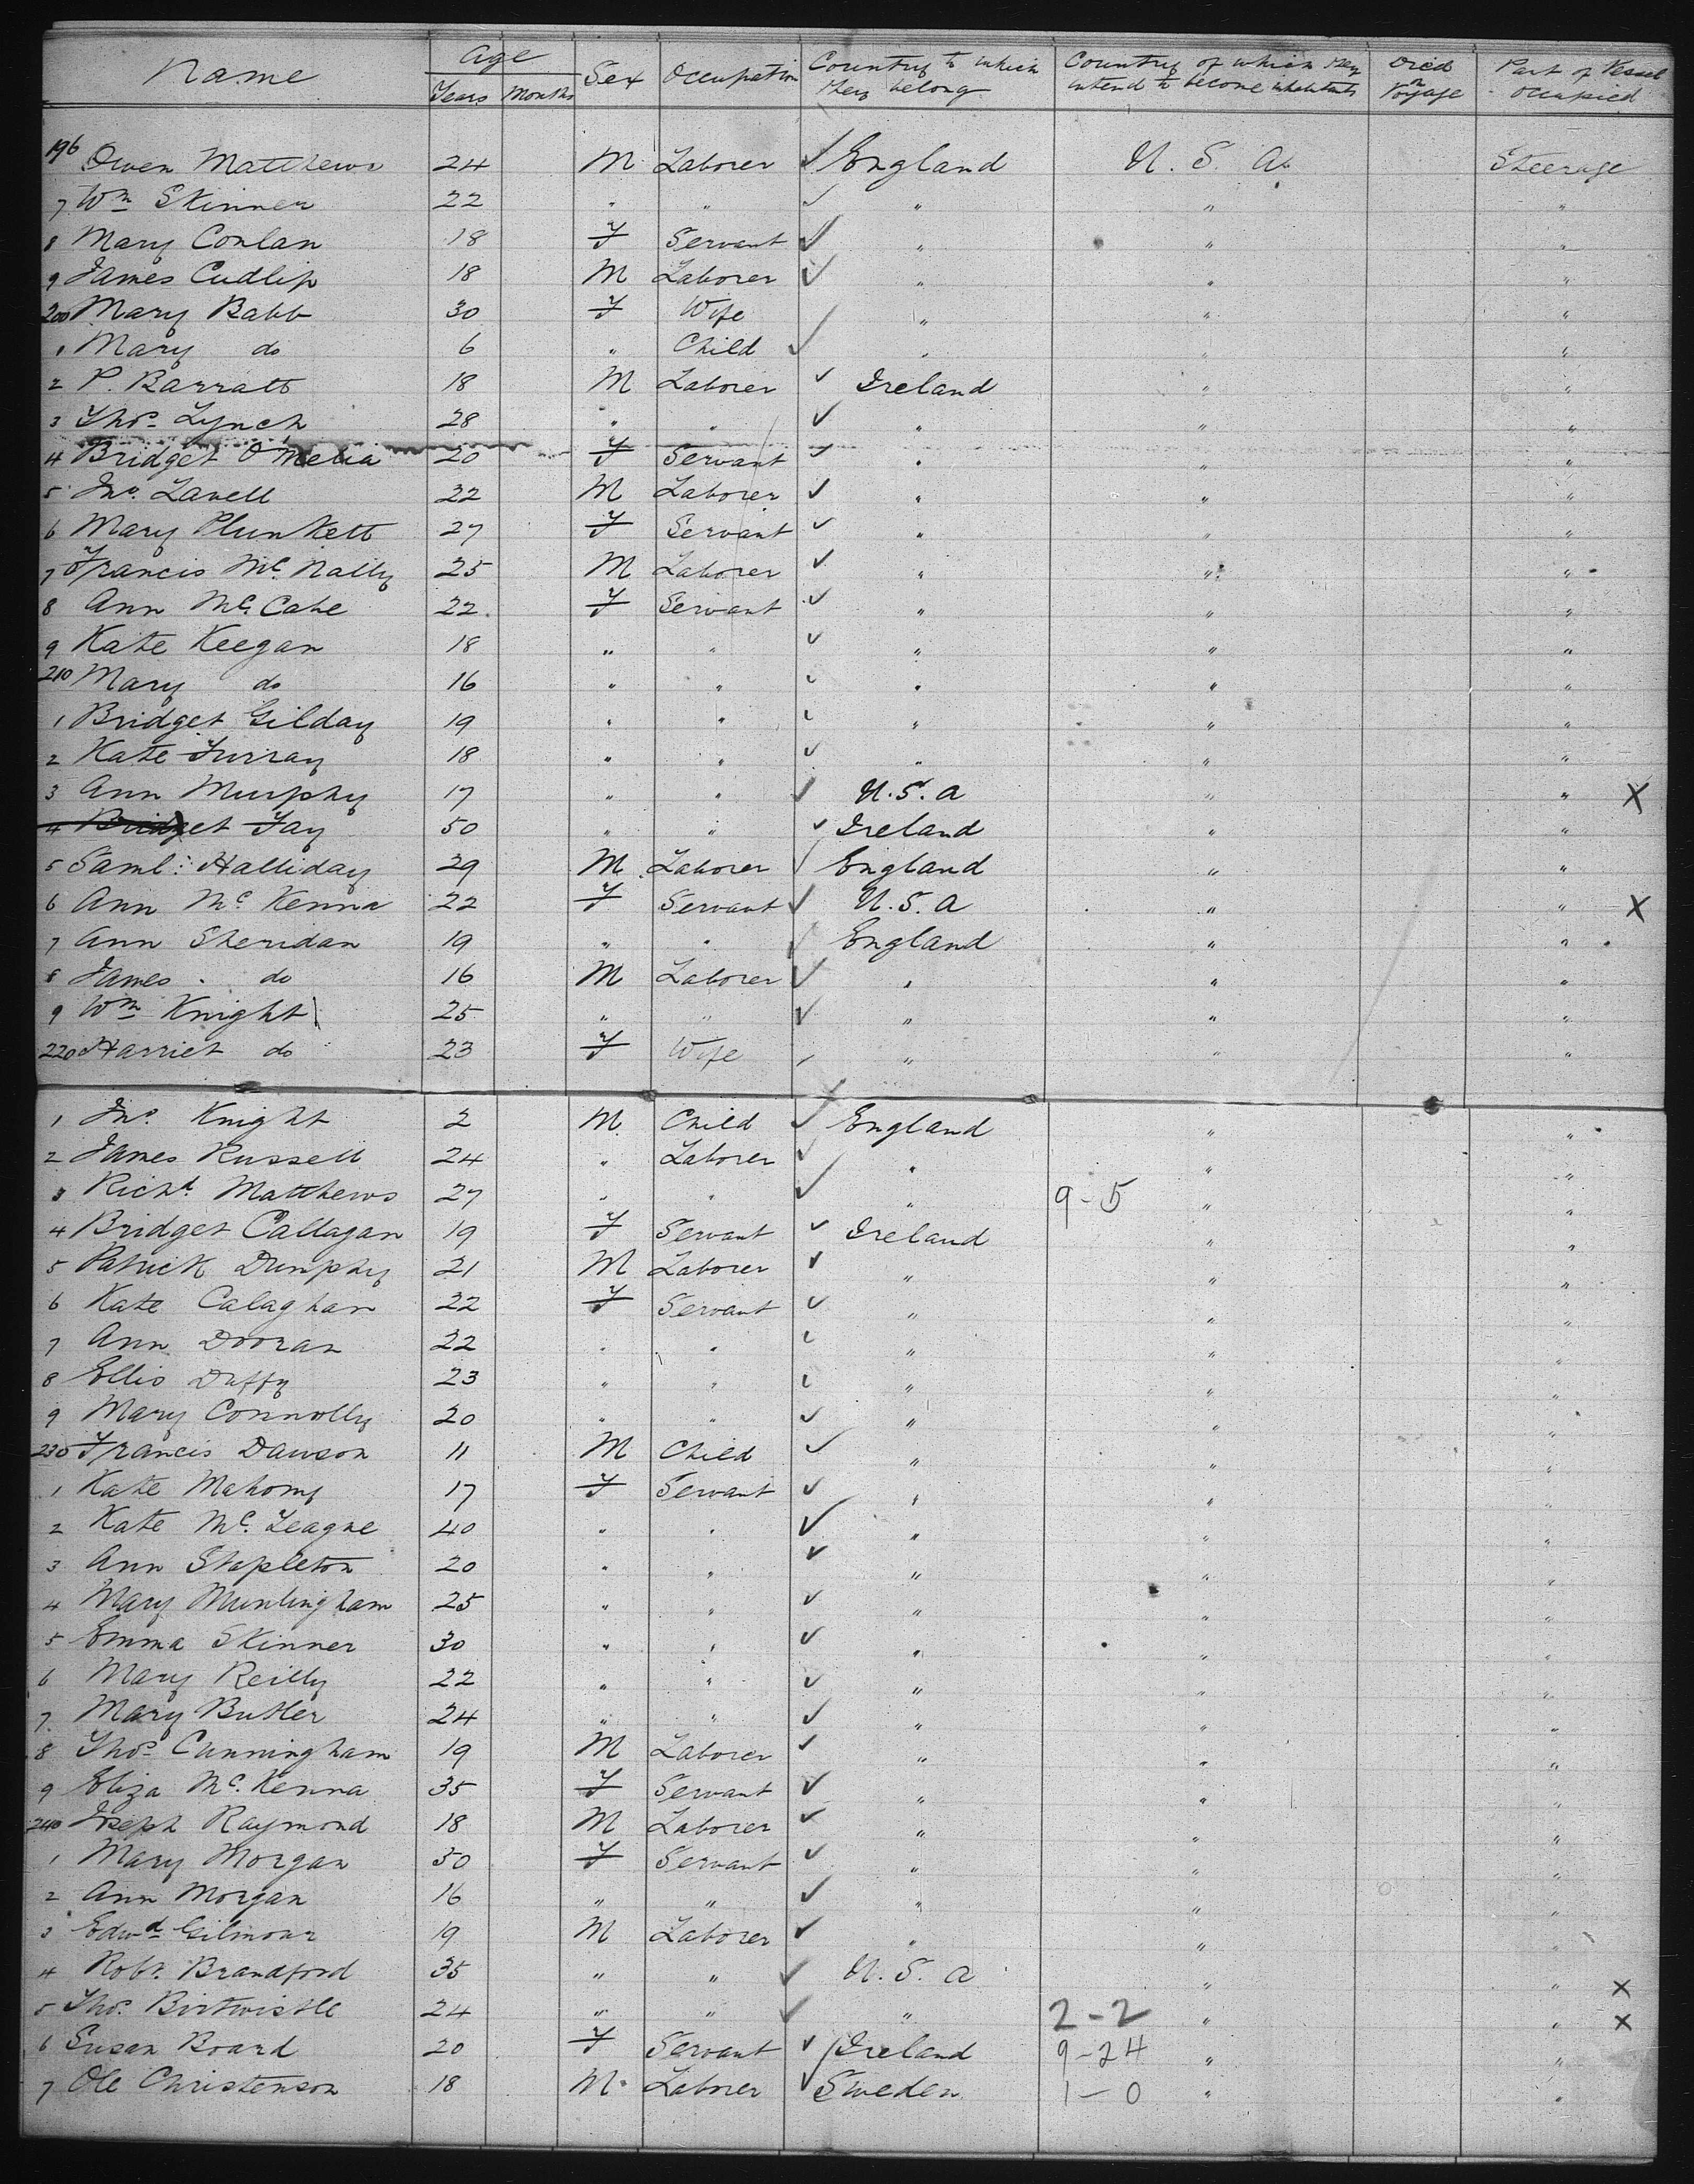 Name Age Sex Occupation Country to which they belong Country of which they intend to become inhabitants Died on Voyage Part of Vessel occupied
Years Months
196 Owen Matthews 24 M Laborer ✓ England U. S. A. Steerage
7 Wm Skinner 22 " " ✓ " " "
8 Mary Conlan 18 F Servant ✓ " " "
9 James Cudlip 18 M Laborer ✓ " " "
200 Mary Babb 30 F Wife ✓ " " "
1 Mary do 6 " Child ✓ " " "
2 P. Barratt 18 M Laborer ✓ Ireland " "
3 Thos. Lynch 28 " " ✓ " " "
4 Bridget O'Melia 20 F Servant ✓ " " "
5 Jno. Lavell 22 M Laborer ✓ " " "
6 Mary Plunkett 27 F Servant ✓ " " "
7 Francis McNally 25 M Laborer ✓ " " "
8 Ann McCabe 22 F Servant ✓ " " "
9 Kate Keegan 18 " " ✓ " " "
210 Mary do 16 " " ✓ " " "
1 Bridget Gilday 19 " " ✓ " " "
2 Kate Furray 18 " " ✓ " " "
3 Ann Murphy 17 " " ✓ U.S.A " " X
4 Bridget Fay 50 " " ✓ Ireland " "
5 Saml. Halliday 29 M Laborer ✓ England " "
6 Ann McKenna 22 F Servant ✓ U.S.A " " X
7 Ann Sheridan 19 " " ✓ England " "
8 James do 16 M Laborer ✓ " " "
9 Wm Knight 25 " " ✓ " " "
220 Harriet do 23 F Wife ✓ " " "
1 Jno. Knight 2 M Child ✓ England " "
2 James Russell 24 " Laborer ✓ " " "
3 Richd. Matthews 27 " " ✓ " 9-5 " "
4 Bridget Callagan 19 F Servant ✓ Ireland " "
5 Patrick Dunphy 21 M Laborer ✓ " " "
6 Kate Calaghan 22 F Servant ✓ " " "
7 Ann Dooran 22 " " ✓ " " "
8 Ellis Duffy 23 " " ✓ " " "
9 Mary Connolly 20 " " ✓ " " "
230 Francis Dawson 11 M Child ✓ " " "
1 Kate Mahony 17 F Servant ✓ " " "
2 Kate McLeague 40 " " ✓ " " "
3 Ann Stapleton 20 " " ✓ " " "
4 Mary Munlingham 25 " " ✓ " " "
5 Emma Skinner 30 " " ✓ " " "
6 Mary Reilly 22 " " ✓ " " "
7 Mary Butler 24 " " ✓ " " "
8 Thos. Cunningham 19 M Laborer ✓ " " "
9 Eliza McKenna 35 F Servant ✓ " " "
240 Joseph Raymond 18 M Laborer ✓ " " "
1 Mary Morgan 50 F Servant ✓ " " "
2 Ann Morgan 16 " " ✓ " " "
3 Edwd Gilmour 19 M Laborer ✓ " " "
4 Robt. Brandford 35 " " ✓ U. S. A " " X
5 Thos. Birtwistle 24 " " ✓ " 2-2 " " X
6 Susan Board 20 F Servant ✓ Ireland 9-24 " "
7 Ole Christenson 18 M Laborer ✓ Sweden 1-0 " "